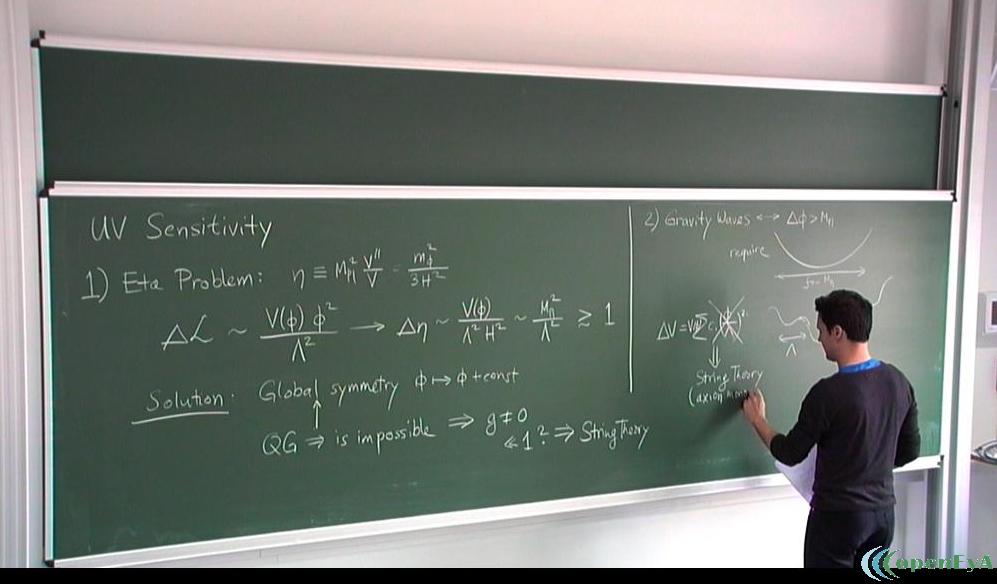 UV Sensitivity
1) Eta Problem: η ≡ M_Pl² V''/V = m_ϕ²/3H²
Δℒ ~ V(ϕ) ϕ²/Λ² → Δη ~ V(ϕ)/Λ² H² ~ M_Pl²/Λ² ≳ 1
Solution: Global symmetry ϕ ↦ ϕ + const
↑
QG ⇒ is impossible ⇒ g ≠ 0
≪ 1 ? ⇒ String Theory
2) Gravity Waves ↔ Δϕ > M_Pl
require
ΔV =
Λ
⇓
String Theory
(axion
openEyA